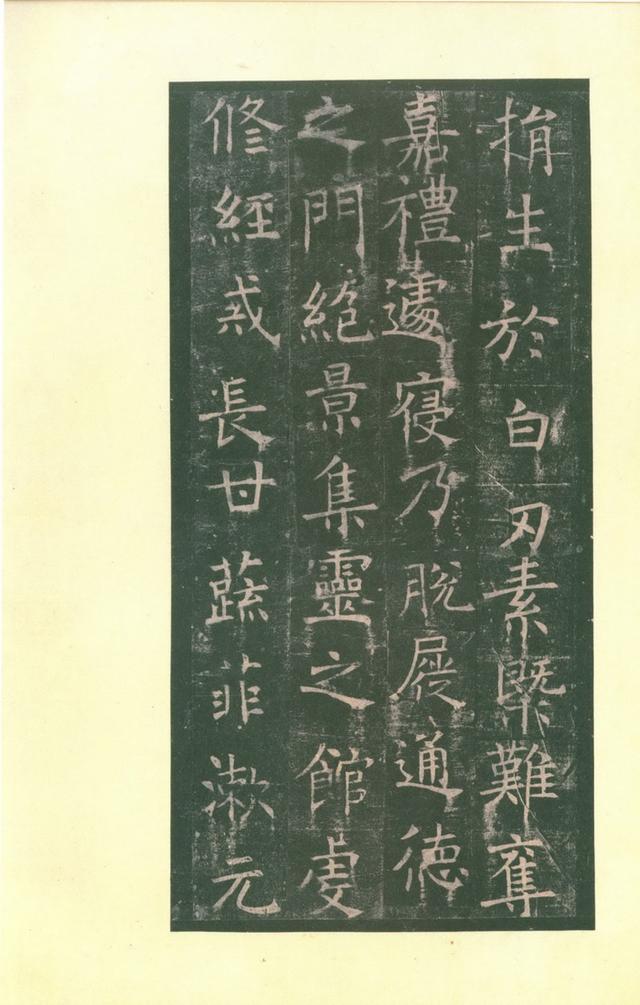 捐生於白刃素槩難奪
嘉禮遽寝乃脫屣通德
之門絶景集靈之館虔
修經戒長甘蔬菲漱元